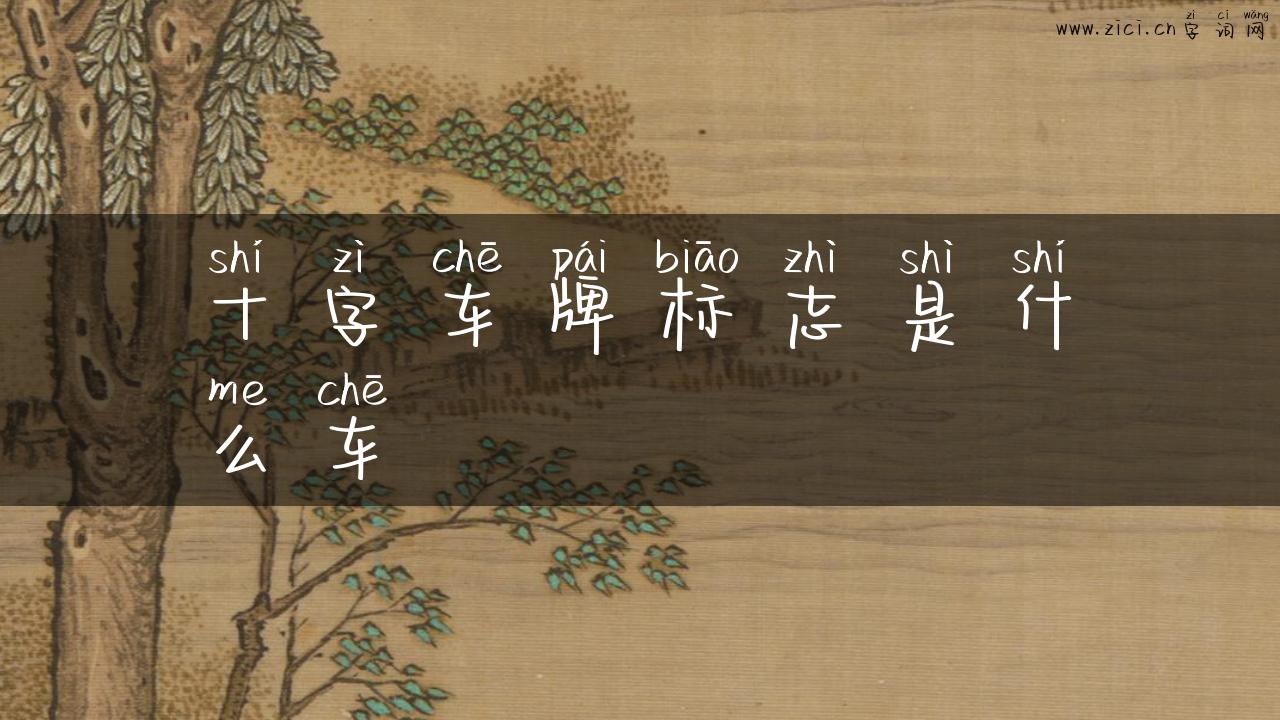 zì cí wǎng
www.zici.cn 字词网
shí zì chē pái biāo zhì shì shí
十字车牌标志是什
me chē
么车